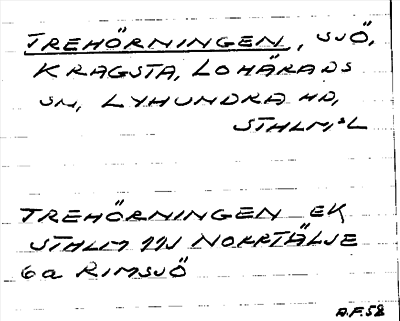 TREHÖRNINGEN, SJÖ,
KRAGSTA, LOHÄRADS
SN, LYHUNDRA HD,
STHLM:S L
TREHÖRNINGEN EK
STHLM 11J NORRTÄLJE
6a RIMSJÖ
A.F. 58